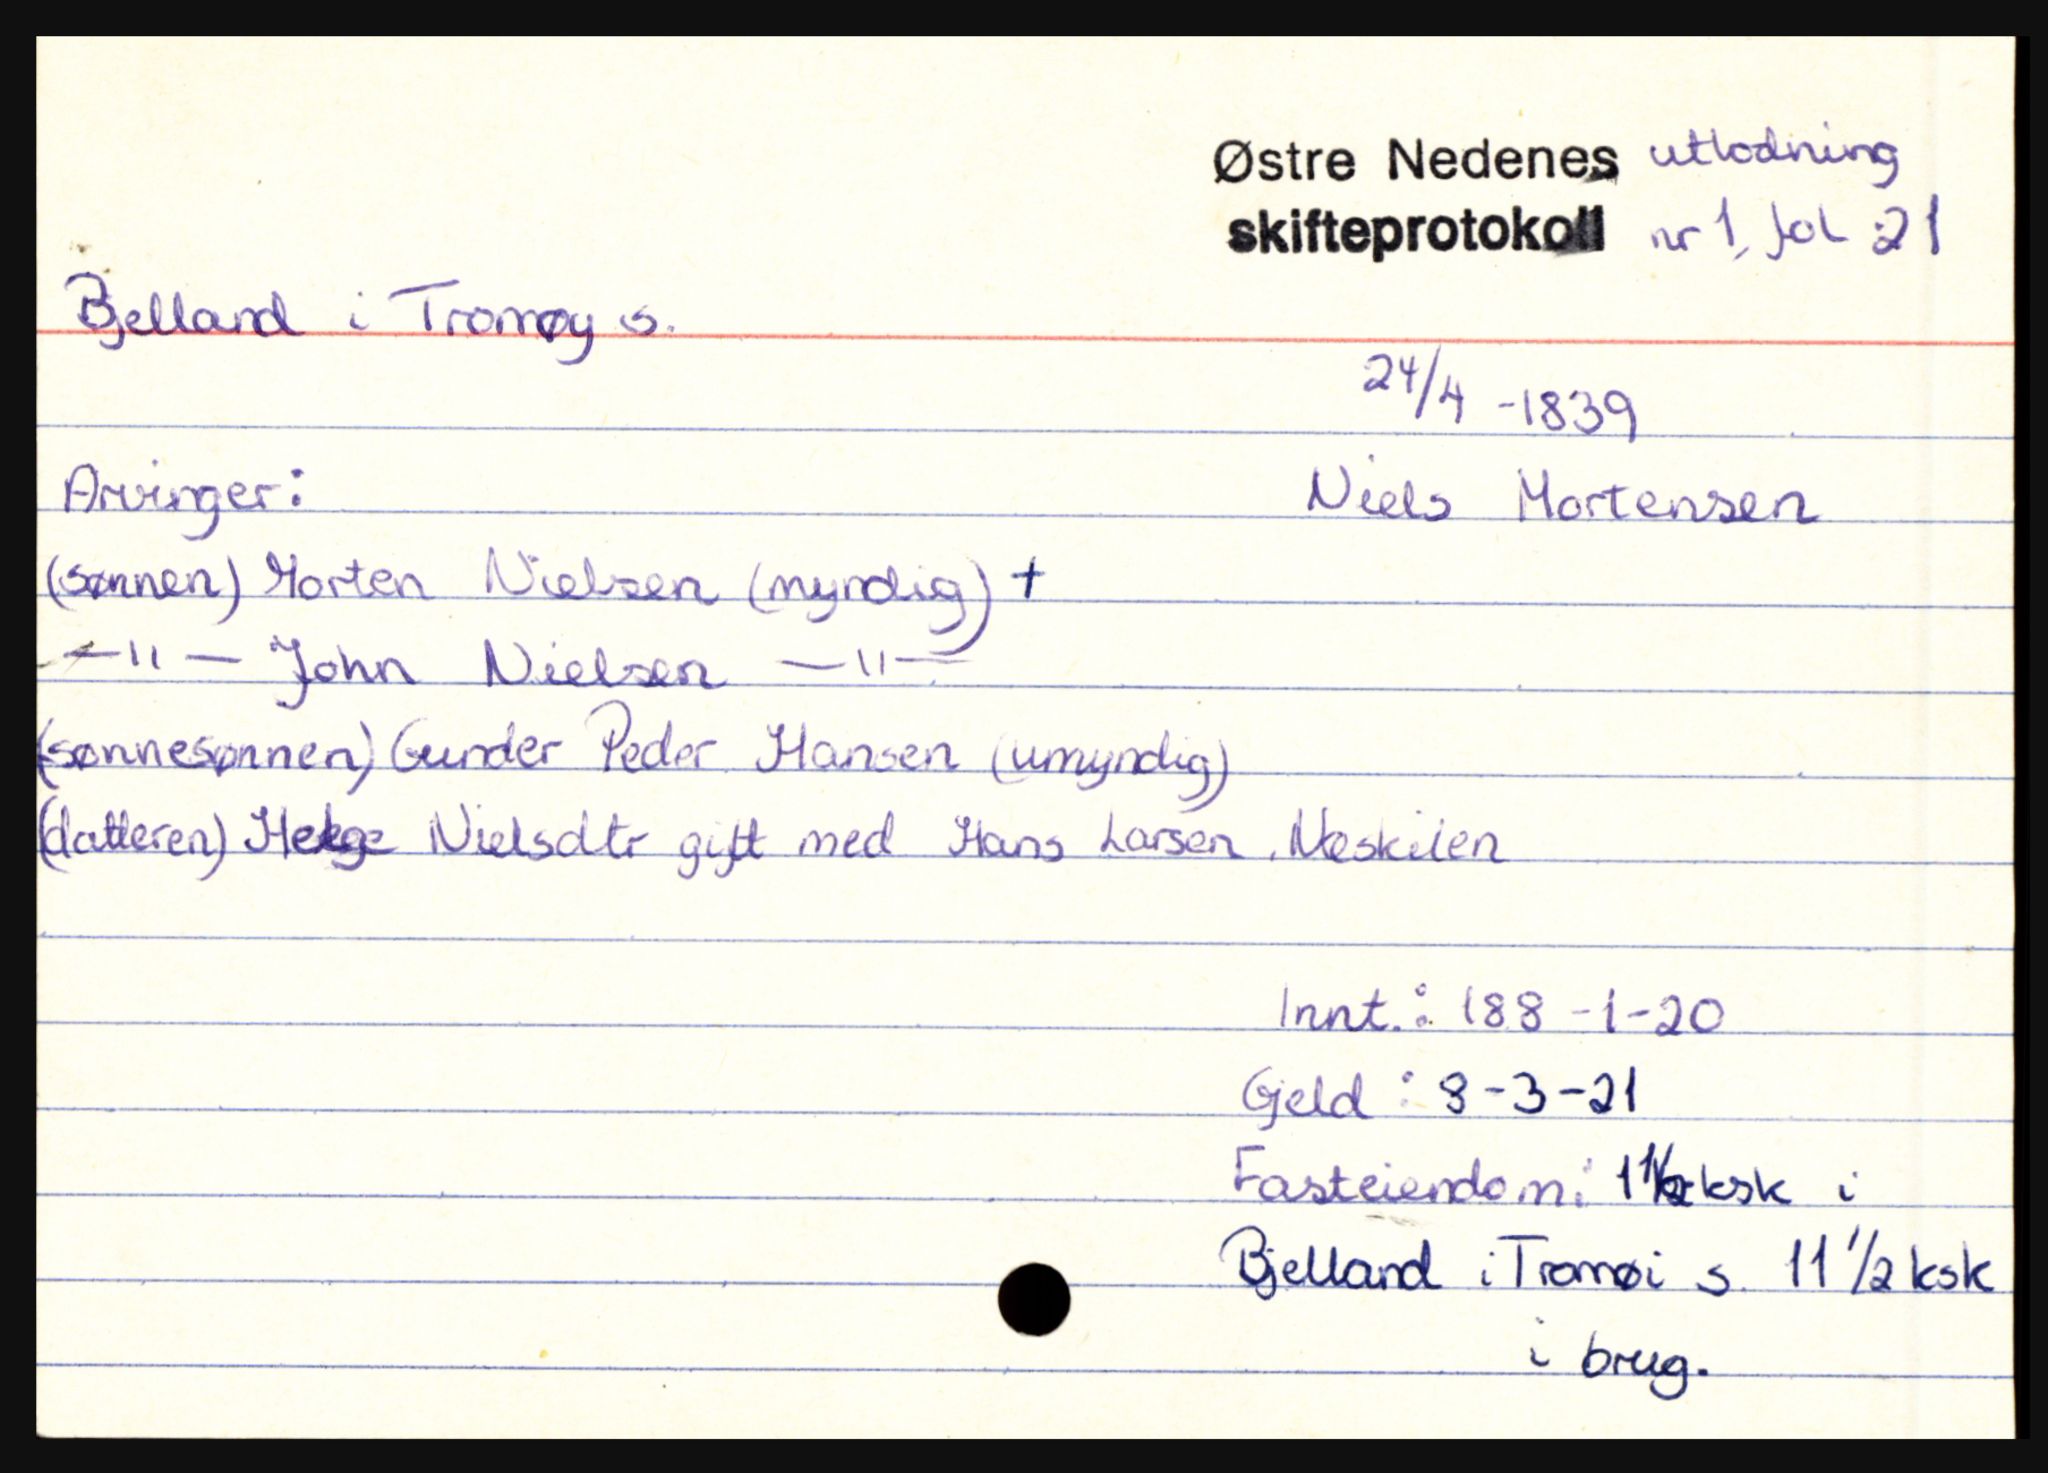 Østre Nedenes utlodning
skifteprotokoll nr 1, fol 21
Bjelland i Tromøy s.
24/4 -1839
Arvinger: Niels Mortensen
(sønnen) Morten Nielsen (myndig) +
—"— John Nielsen —"—
(sønnesønnen) Gunder Peder Hansen (umyndig)
(datteren) Helge Nielsdtr gift med Hans Larsen Næskilen
Innt.: 188-1-20
Gjeld: 8-3-21
Fasteiendom: 1 1/2 ksk i
Bjelland i Tromøi s. 11 1/2 ksk
i brug.